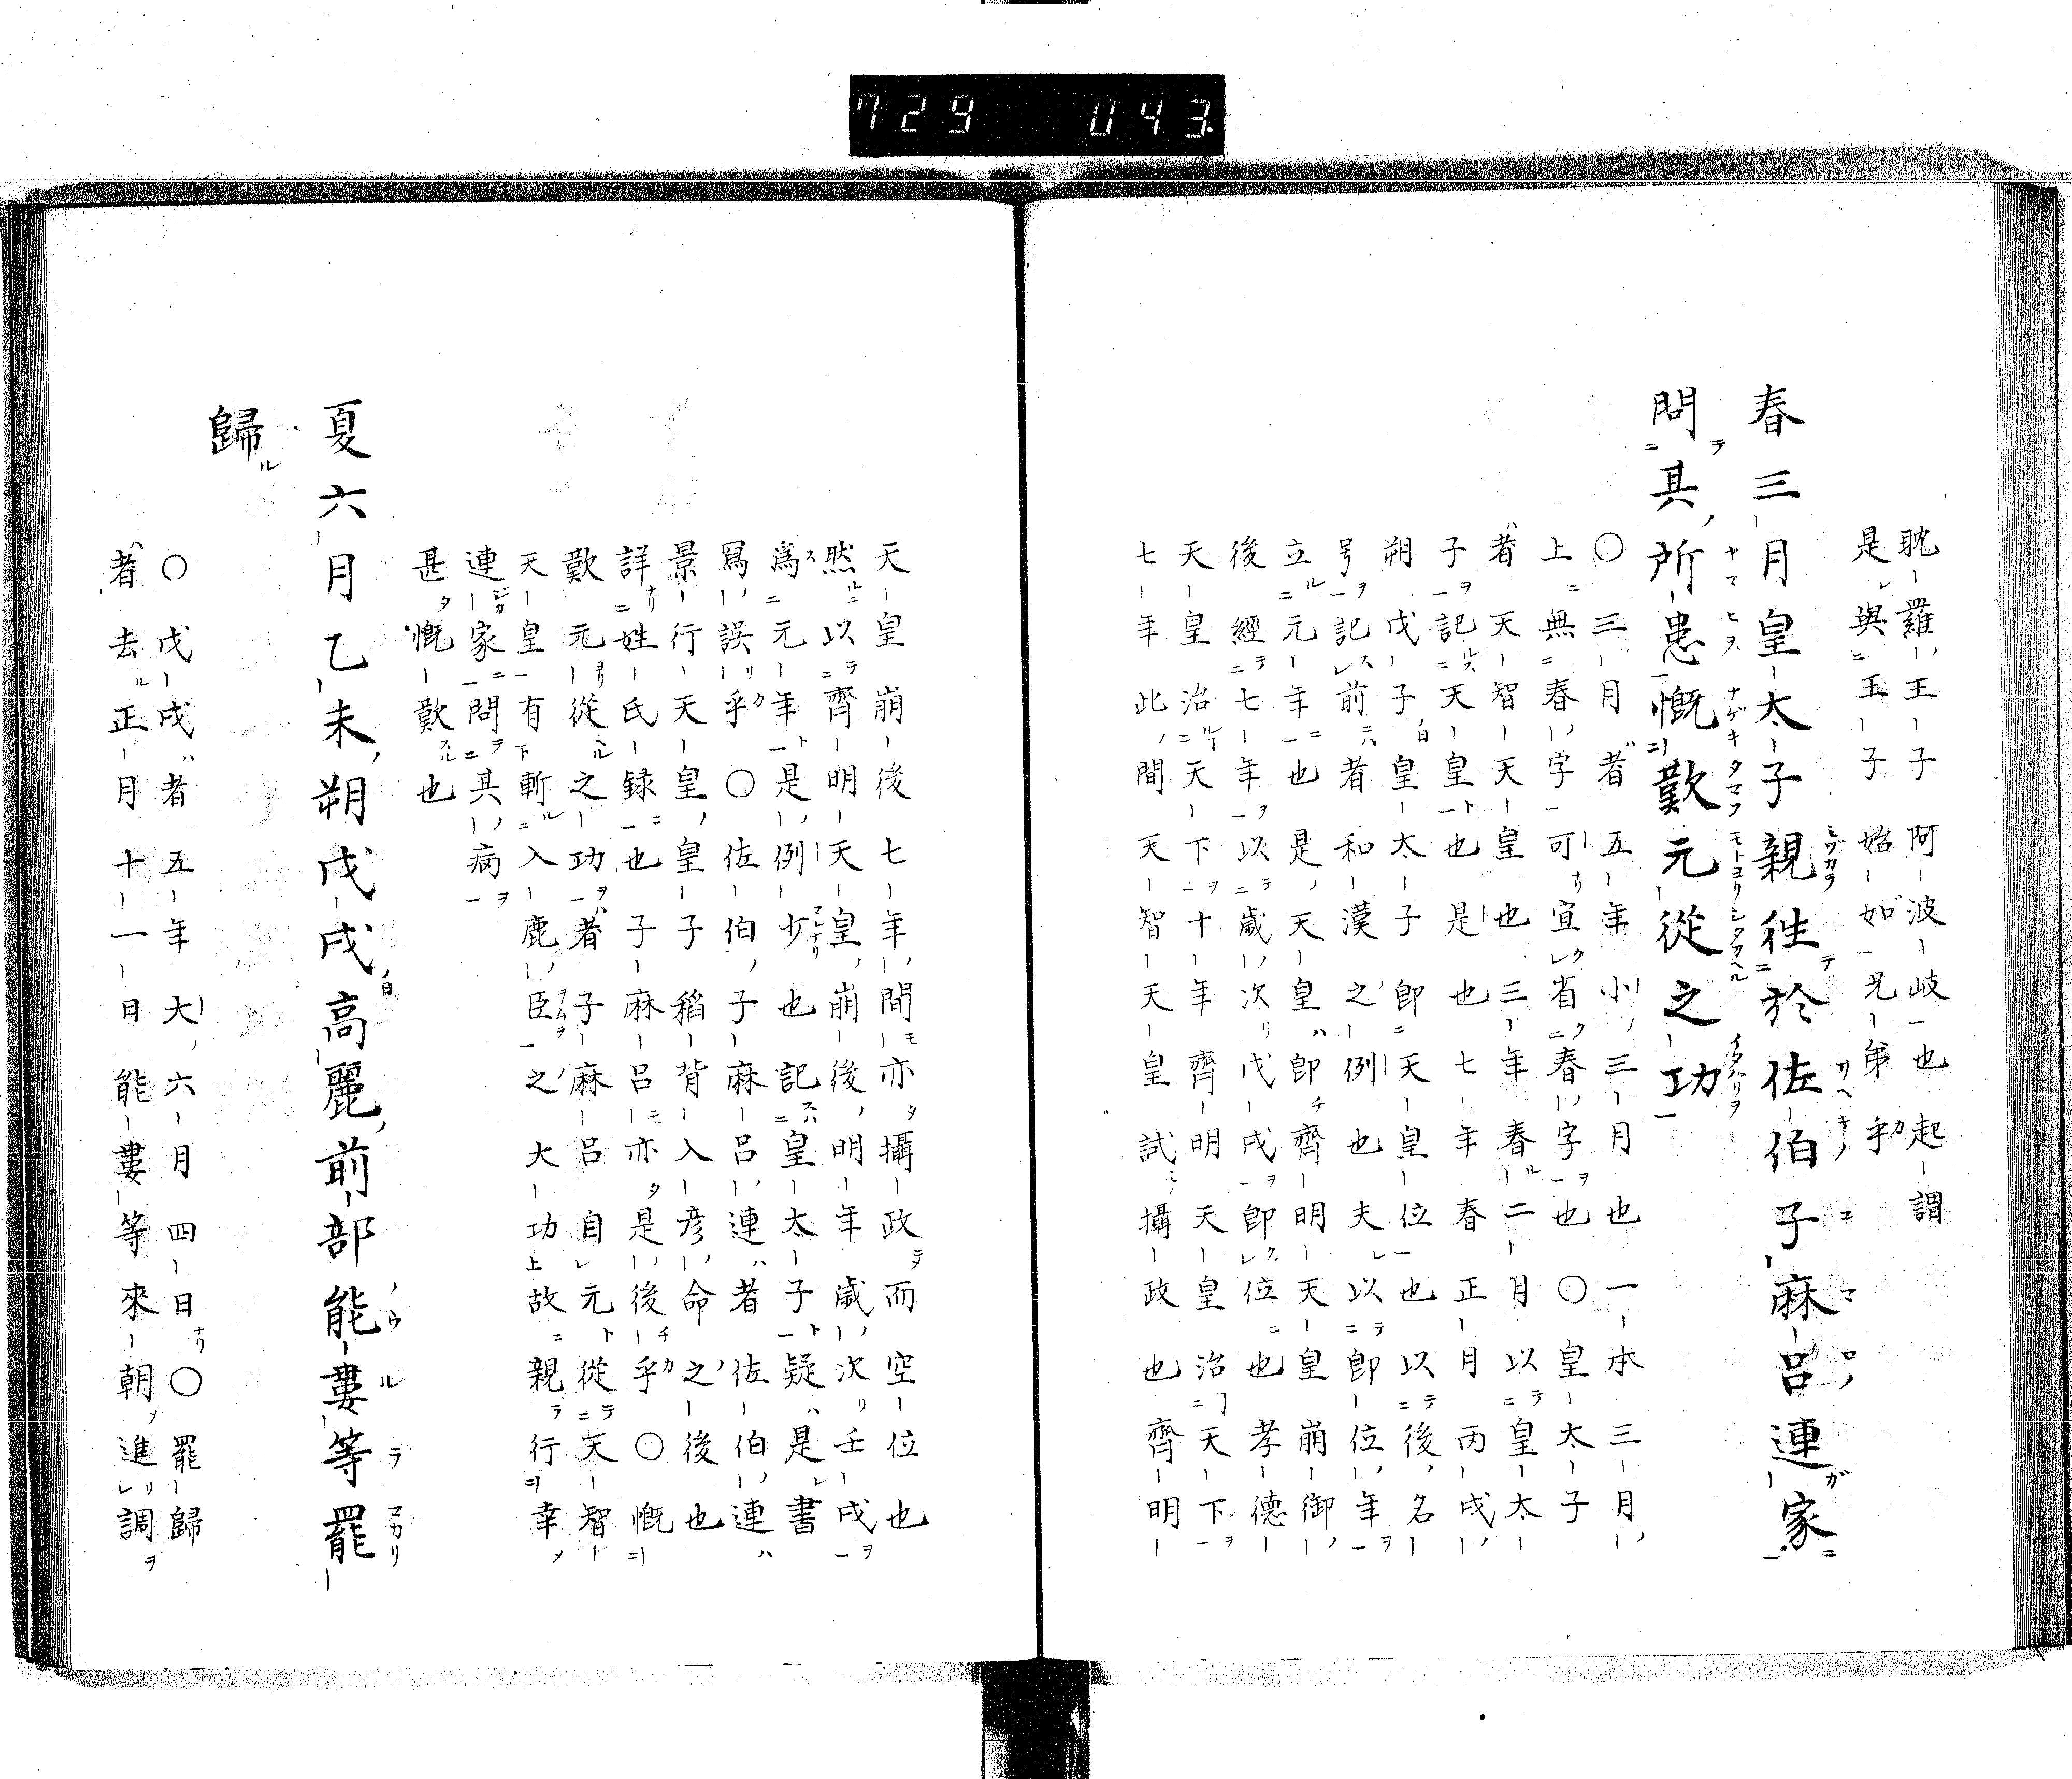 729 043.
耽羅王子阿波岐也起謂
是與王子始如兄弟乎
春三月皇太子親徃於佐伯子麻呂連家
問其所患慨歎元從之功
〇三月者五年小三月也一本三月
上無春字可宜省春字也〇皇太子
者天智天皇也三年春二月以皇太
子記天皇也是也七年春正月丙戌
朔戊子皇太子即天皇位也以後名
号記前者和漢之例也夫以即位年
立元年也是天皇即齊明天皇崩御
後經七年以歳次戊戌即位也孝德
天皇治天下十年齊明天皇治天下
七年此間天智天皇試攝政也齊明
天皇崩後七年間亦攝政而空位也
然以齊明天皇崩後明年歳次壬戌
爲元年是例少也記皇太子疑是書
寫誤乎〇佐伯子麻呂連者佐伯連
景行天皇皇子稻背入彦命之後也
詳姓氏録也子麻呂亦是後乎〇慨
歎元從之功者子麻呂自元從天智
天皇有斬入鹿臣之大功故親行幸
連家問其病
甚慨歎也
夏六月乙未朔戊戌高麗前部能婁等罷
歸
〇戊戌者五年大六月四日〇罷歸
者去正月十一日能婁等來朝進調